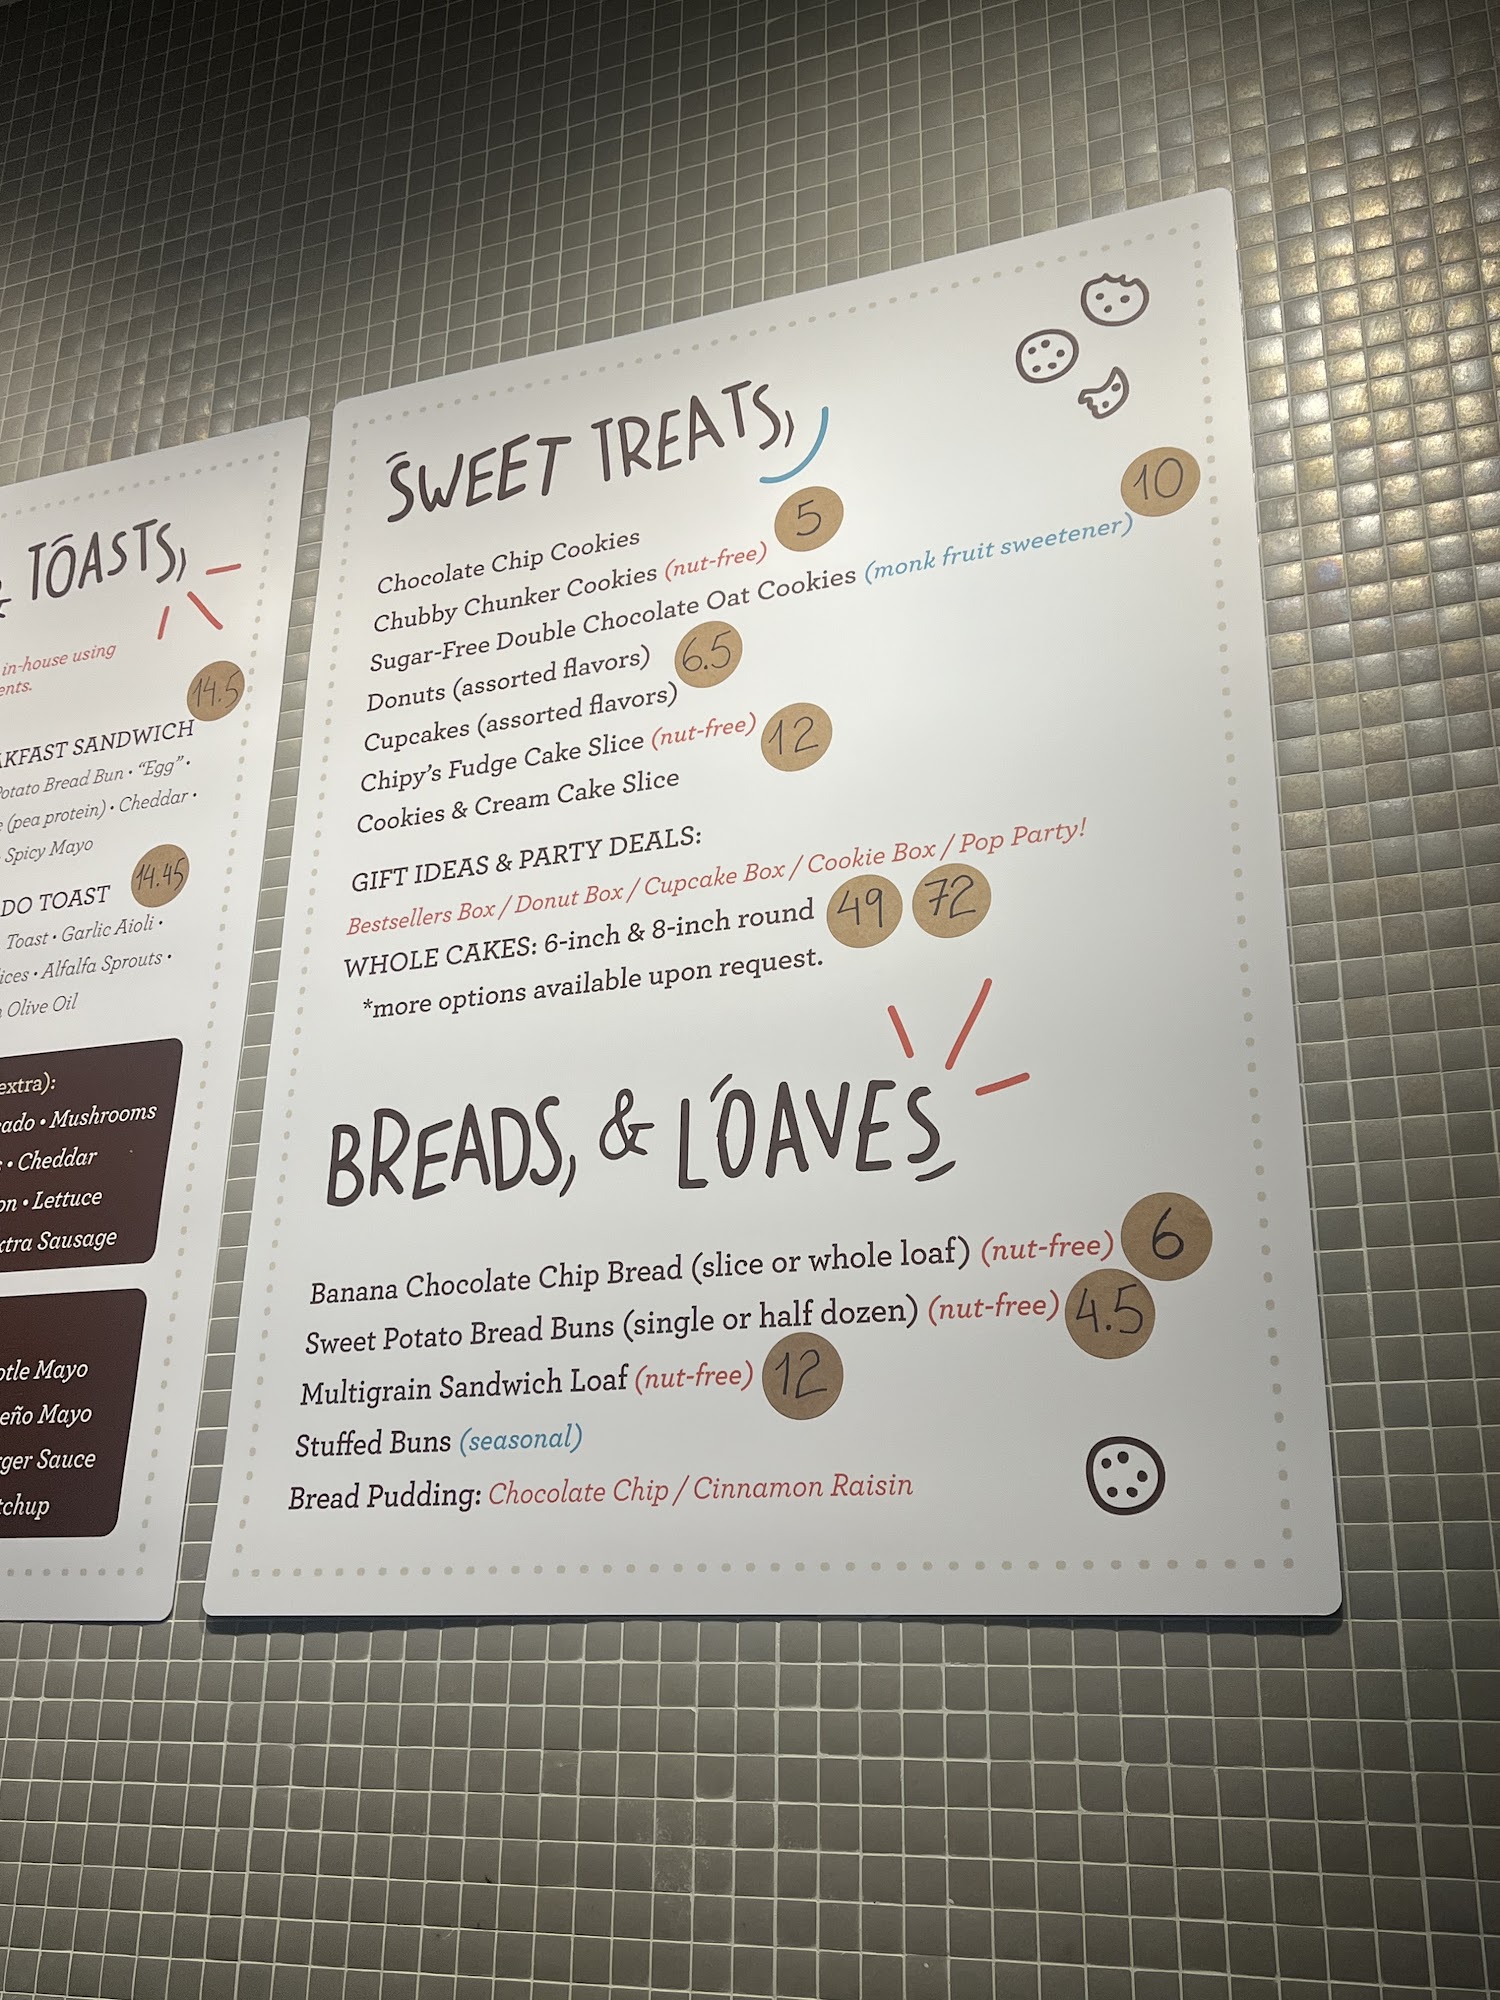 & TOASTS,
in-house using
14.5
SANDWICH
Potato Bread Bun • "Egg" •
(pea protein) • Cheddar •
Spicy Mayo
14.45
TOAST
Toast • Garlic Aioli •
• Alfalfa Sprouts •
Olive Oil
extra):
• Mushrooms
• Cheddar
• Lettuce
Sausage
Mayo
Mayo
Sauce
SWEET TREATS,
Chocolate Chip Cookies
Chubby Chunker Cookies (nut-free) 5
Sugar-Free Double Chocolate Oat Cookies (monk fruit sweetener) 10
Donuts (assorted flavors) 6.5
Cupcakes (assorted flavors)
Chipy's Fudge Cake Slice (nut-free) 12
Cookies & Cream Cake Slice
GIFT IDEAS & PARTY DEALS:
Bestsellers Box / Donut Box / Cupcake Box / Cookie Box / Pop Party!
WHOLE CAKES: 6-inch & 8-inch round 49 72
*more options available upon request.
BREADS, & LOAVES
Banana Chocolate Chip Bread (slice or whole loaf) (nut-free) 6
Sweet Potato Bread Buns (single or half dozen) (nut-free) 4.5
Multigrain Sandwich Loaf (nut-free) 12
Stuffed Buns (seasonal)
Bread Pudding: Chocolate Chip / Cinnamon Raisin